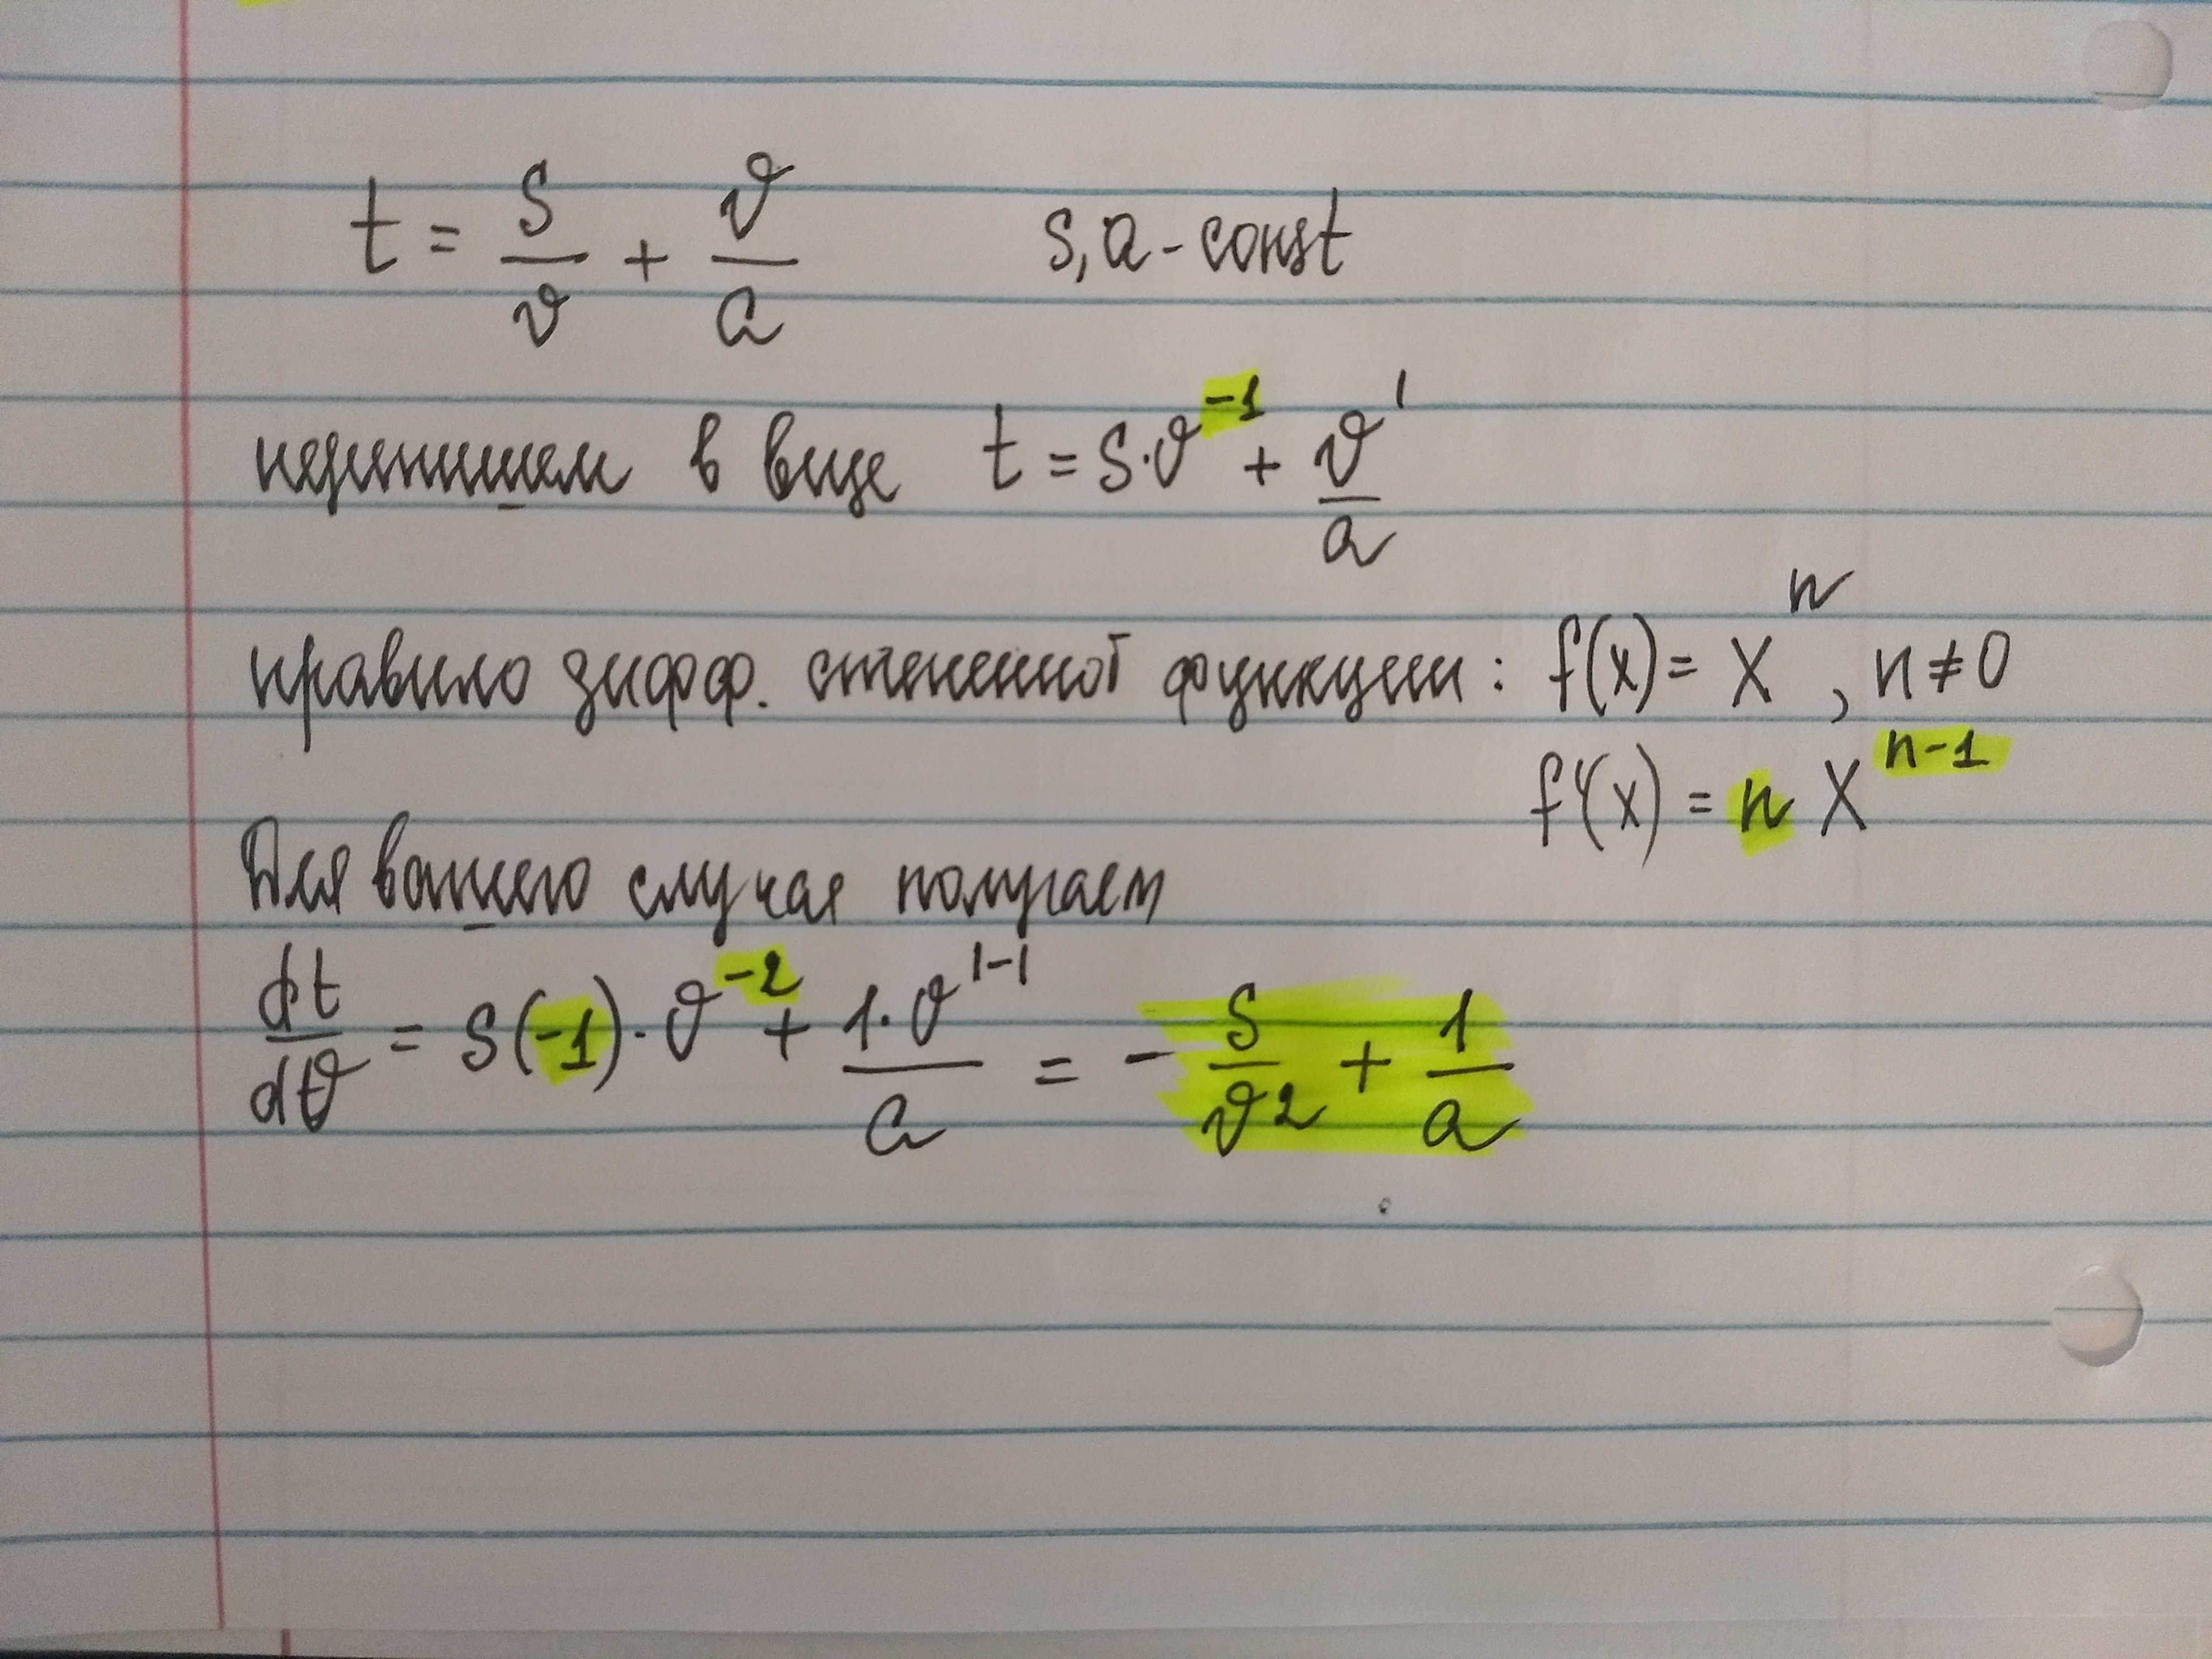 t = s/v + v/a     s, a - const
перепишем в виде t = s·v⁻¹ + v¹/a
правило дифф. степенной функции: f(x) = xⁿ, n ≠ 0
f'(x) = n xⁿ⁻¹
Для вашего случая получаем
dt/dv = s(-1)·v⁻² + 1·v¹⁻¹/a = - s/v² + 1/a